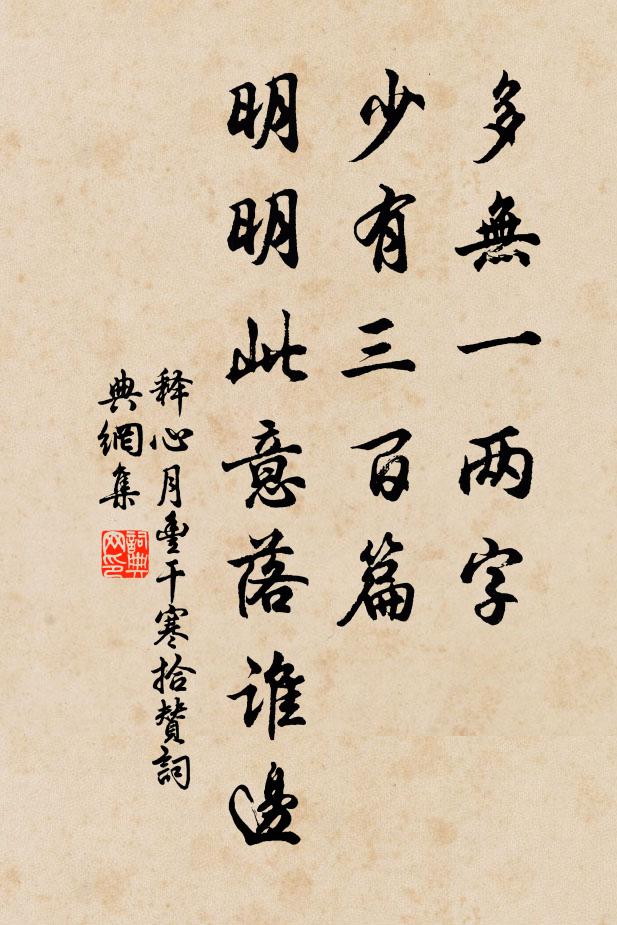 多無一两字
少有三百篇
明明此意落谁邊
释心月豊干寒拾赞詞
典網集
詞典
网印